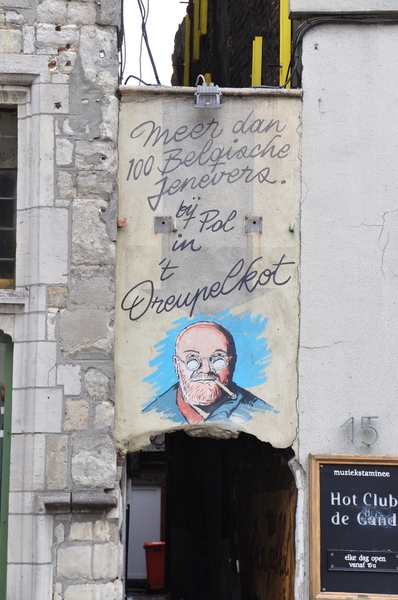 Meer dan
100 Belgische
Jenevers.
bij Pol
in
't
Dreupelkot
15
muziekstaminee
Hot Club
de Gand
elke dag open
vanaf 15u